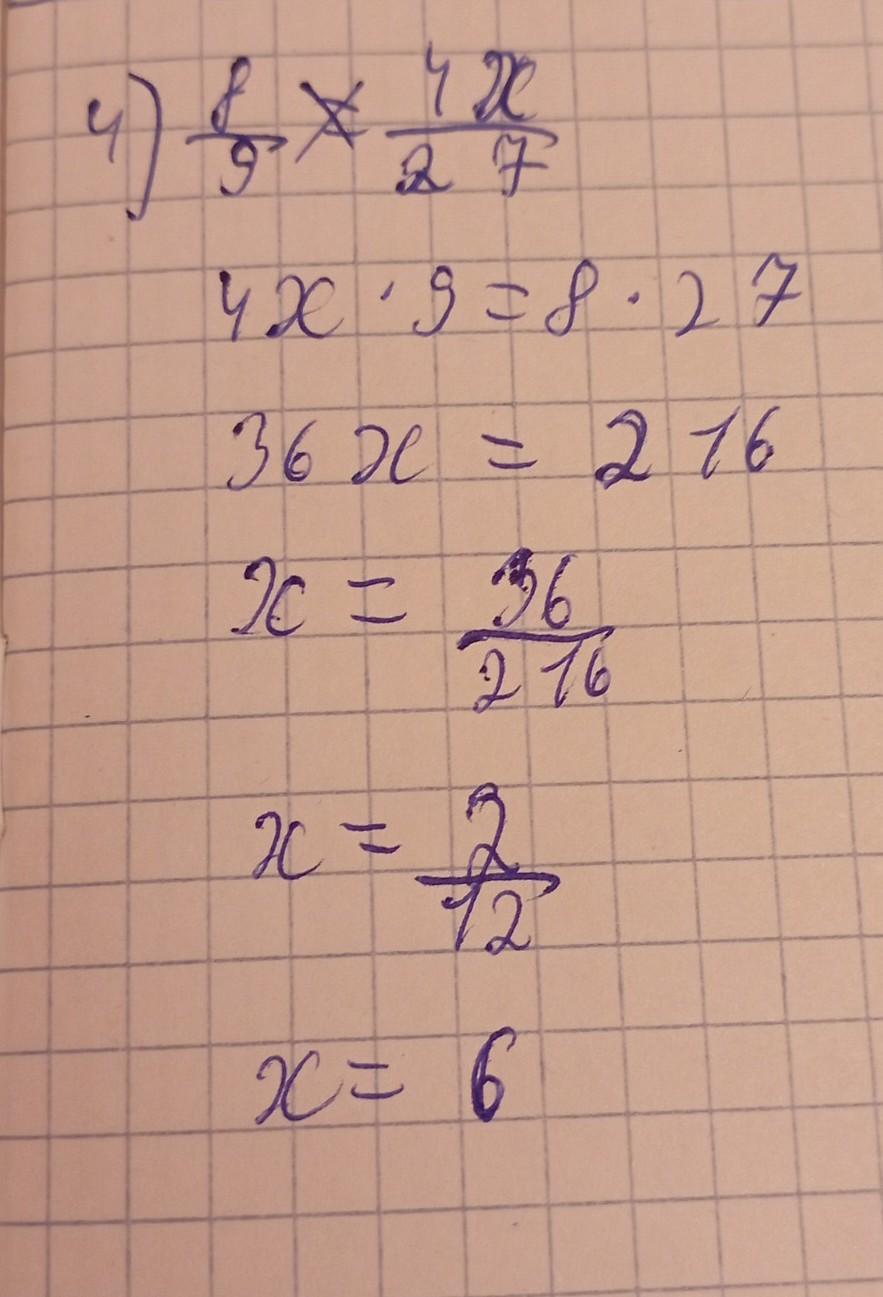 4) 8/9 = 4x/27
4x · 9 = 8 · 27
36x = 216
x = 36/216
x = 2/12
x = 6